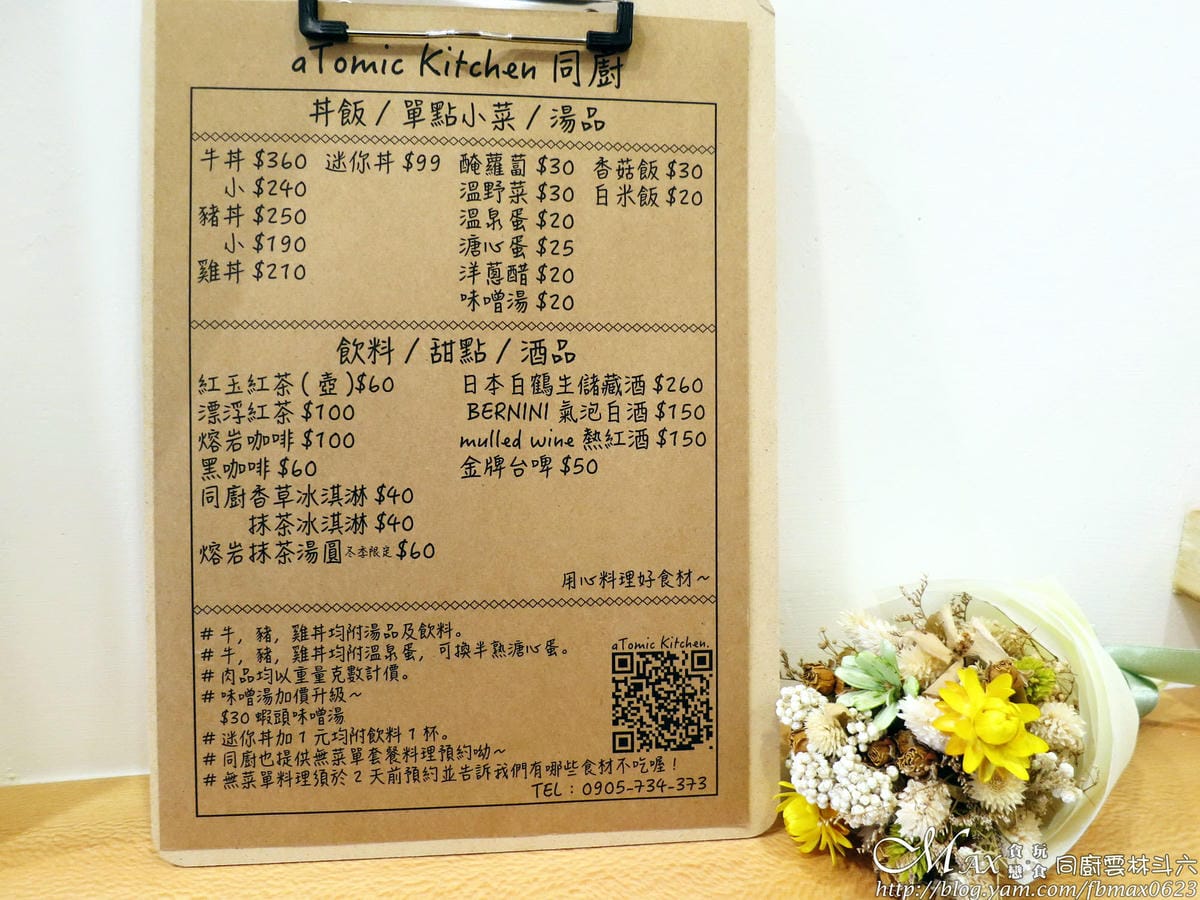 aTomic Kitchen 同廚
丼飯 / 單點小菜 / 湯品
牛丼 $360
小 $240
豬丼 $250
小 $190
雞丼 $210
迷你丼 $99
醃蘿蔔 $30
溫野菜 $30
溫泉蛋 $20
溏心蛋 $25
洋蔥醋 $20
味噌湯 $20
香菇飯 $30
白米飯 $20
飲料 / 甜點 / 酒品
紅玉紅茶 ( 壺 )$60
漂浮紅茶 $100
熔岩咖啡 $100
黑咖啡 $60
同廚香草冰淇淋 $40
抹茶冰淇淋 $40
熔岩抹茶湯圓 冬季限定 $60
日本白鶴生儲藏酒 $260
BERNINI 氣泡白酒 $150
mulled wine 熱紅酒 $150
金牌台啤 $50
用心料理好食材~
# 牛, 豬, 雞丼均附湯品及飲料。
# 牛, 豬, 雞丼均附溫泉蛋, 可換半熟溏心蛋。
# 肉品均以重量克數計價。
# 味噌湯加價升級~
$30 蝦頭味噌湯
# 迷你丼加 1 元均附飲料 1 杯。
# 同廚也提供無菜單套餐料理預約呦~
# 無菜單料理須於 2 天前預約並告訴我們有哪些食材不吃喔！
aTomic Kitchen.
TEL : 0905-734-373
MAX 食玩戀食 同廚雲林斗六
http://blog.yam.com/fbmax0623